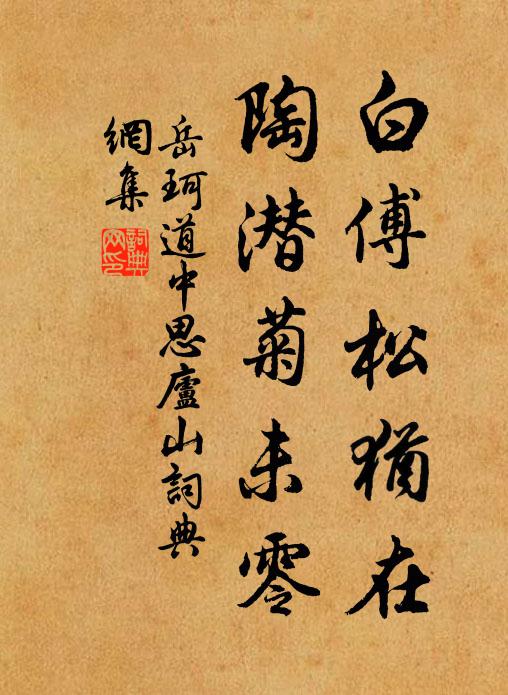 白傅松猶在
陶潜菊未零
岳珂道中思廬山詞典
網集
詞典
网印